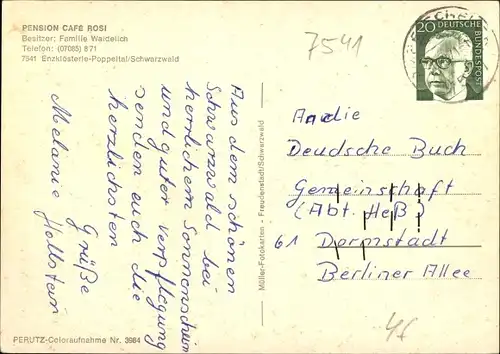 PENSION CAFÉ ROSI
Besitzer: Familie Waidelich
Telefon: (07085) 871
7541 Enzklösterle-Poppeltal/Schwarzwald
7541
20 DEUTSCHE
BUNDESPOST
Aus dem schönen
Schwarzwald bei
herrlichem Sonnenschein
und guter Verpflegung
senden euch die
herzlichsten
Grüße
Melanie Hollstein
Müller-Fotokarten - Freudenstadt/Schwarzwald
An die
Deudsche Buch
Gemeinschaft
(Abt. Heß)
61 Darmstadt
Berliner Allee
PERUTZ-Coloraufnahme Nr. 3984